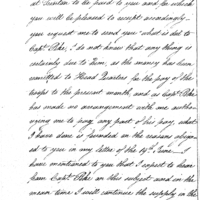 at Trenton to be paid to you and for which
you will be pleased to receipt accordingly—
you request me to send you what is due to
Capt. Pike. I do not know that any thing is
certainly due to him, as the money has been
to Head Quarters for the pay of the
troops to the present month, and as Capt. Pike
has made no arrangement with me autho-
rizing me to pay any part of his pay, what
I have done is founded on the reasons assign-
ed to you in my letter of the 19th June— I
have mentioned to you that I expect to hear
from Capt. Pike on this subject and in the
mean time I will continue the supply in the